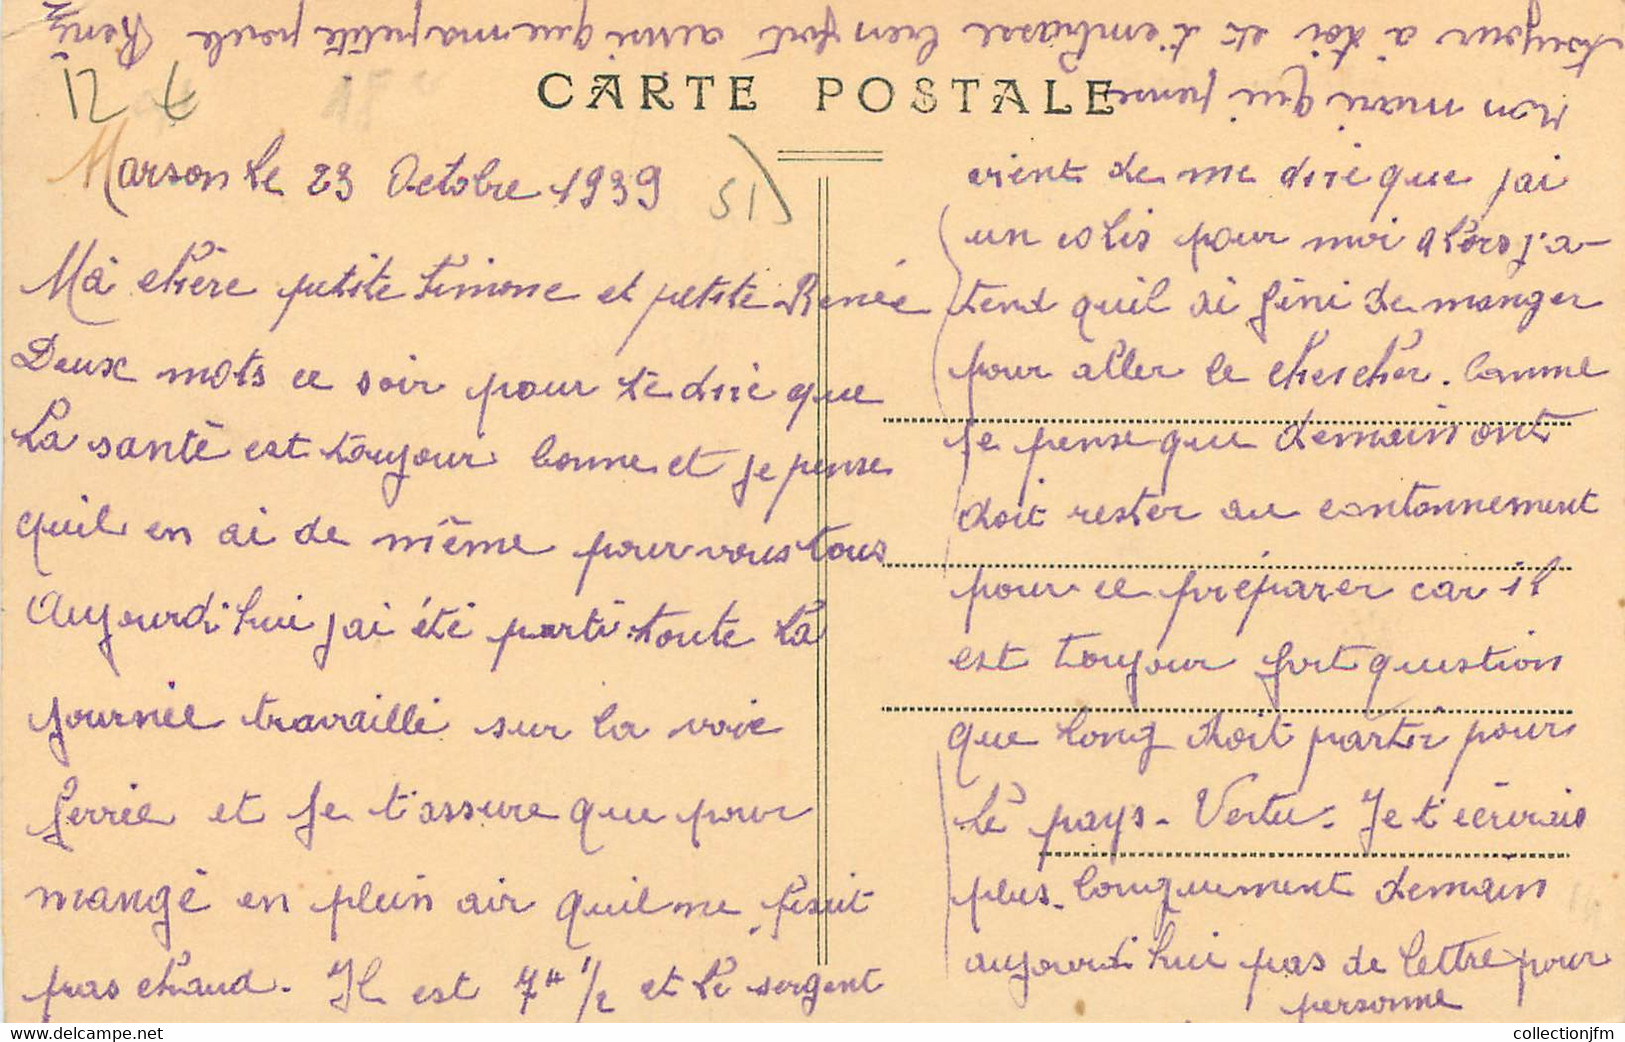 12 €
CARTE POSTALE
51)
Marson le 23 Octobre 1939
Ma chère petite Simone et petite Renée
Deux mots ce soir pour te dire que
la santé est toujour bonne et je pense
quil en ai de même pour vous tous
Aujourdi hui jai été parti toute la
journée travaillé sur la voie
ferrée et je t'assure que pour
mangé en plein air quil ne fesait
pas chaud. Il est 7H 1/2 et le sergent
vient de me dire que jai
un colis pour moi alors j'a-
tend quil ai fini de manger
pour aller le chercher. Comme
je pense que demain ont
doit rester au cantonnement
pour ce préparer car il
est toujour fort question
que long doit partir pour
le pays - Vertu. Je t'écrirais
plus longuement demain
aujourdi hui pas de lettre pour
personne
Mon mari qui pense
toujour a toi et t'embrasse bien fort ainsi que ma petite poule René
collectionjfm